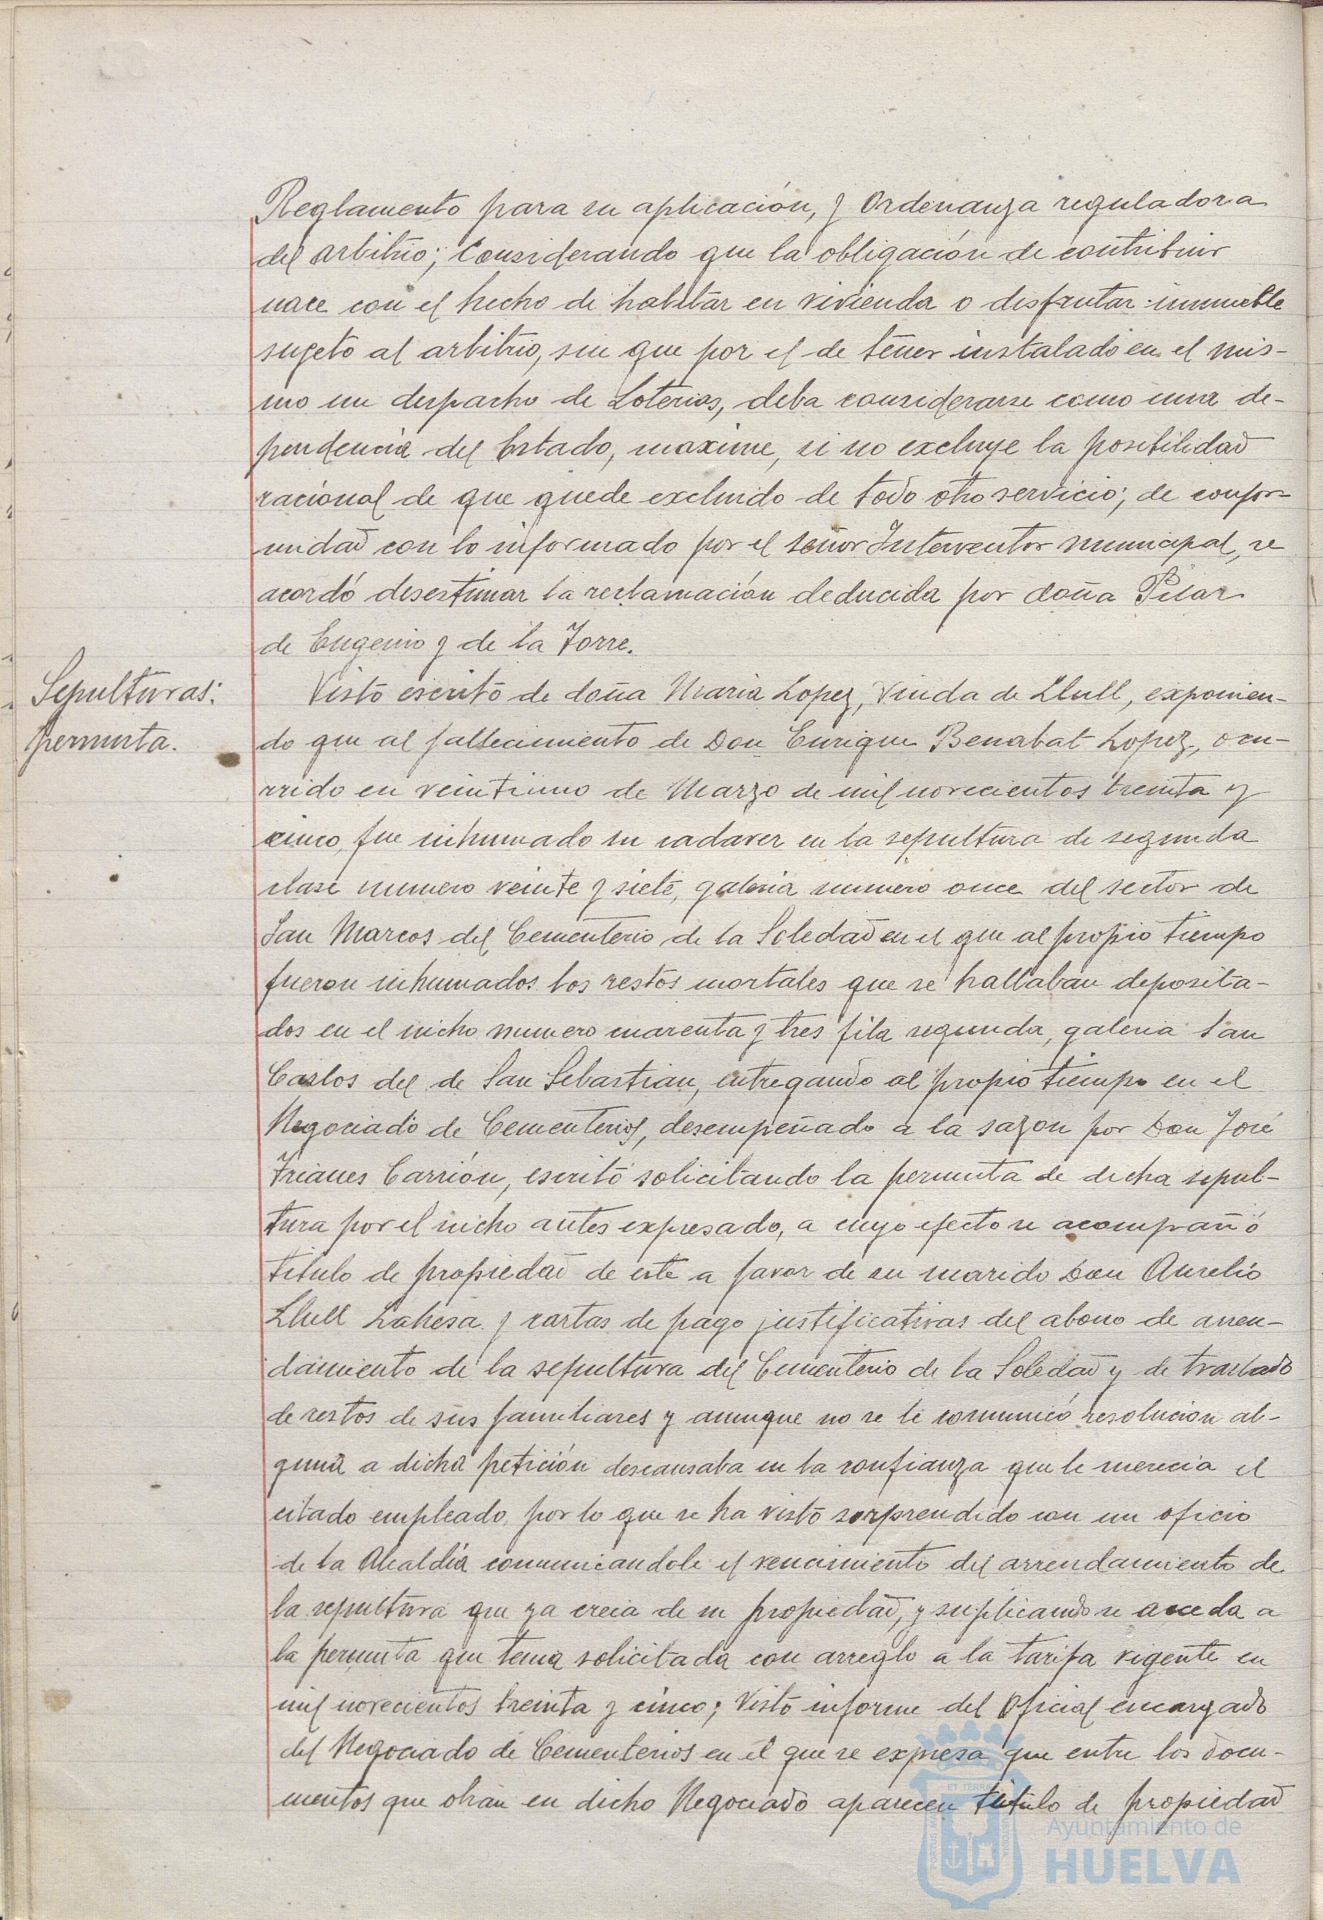 Reglamento para su aplicación, y Ordenanza reguladora
del arbitrio; Considerando que la obligación de contribuir
nace con el hecho de habitar en vivienda o disfrutar inmueble
sugeto al arbitrio, sin que por el de tener instalado en el mis-
mo un despacho de Loterias, deba considerarse como una de-
pendencia del Estado, maxime, si no excluye la posibilidad
racional de que quede excluido de todo otro servicio; de confor-
midad con lo informado por el señor Interventor municipal, se
acordó desestimar la reclamación deducida por doña Pilar
de Eugenio y de la Torre.
Sepulturas:
permuta.
Visto escrito de doña Maria Lopez, Viuda de Llull, exponien-
do que al fallecimiento de Don Enrique Benabat Lopez, ocu-
rrido en veintiuno de Marzo de mil novecientos treinta y
cinco, fue inhumado su cadaver en la sepultura de segunda
clase numero veinte y siete, galeria numero once del sector de
San Marcos del Cementerio de la Soledad en el que al propio tiempo
fueron inhumados los restos mortales que se hallaban deposita-
dos en el nicho numero cuarenta y tres fila segunda, galeria San
Carlos del de San Sebastian, entregando al propio tiempo en el
Negociado de Cementerios, desempeñado a la sazon por Don José
Frianes Carrión, escrito solicitando la permuta de dicha sepul-
tura por el nicho antes expresado, a cuyo efecto se acompañó
titulo de propiedad de este a favor de su marido Don Aurelio
Llull y cartas de pago justificativas del abono de arren-
damiento de la sepultura del Cementerio de la Soledad y de traslado
de restos de sus familiares y aunque no se le comunicó resolucion al-
guna a dicha petición descansaba en la confianza que le merecia el
citado empleado, por lo que se ha visto sorprendido con un oficio
de la Alcaldia comunicandole el vencimiento del arrendamiento de
la sepultura que ya creia de su propiedad, y suplicando se acceda a
la permuta que tenia solicitada con arreglo a la tarifa vigente en
mil novecientos treinta y cinco; Visto informe del Oficial encargado
del Negociado de Cementerios en el que se expresa que entre los docu-
mentos que obran en dicho Negociado aparecen titulo de propiedad
Ayuntamiento de
HUELVA